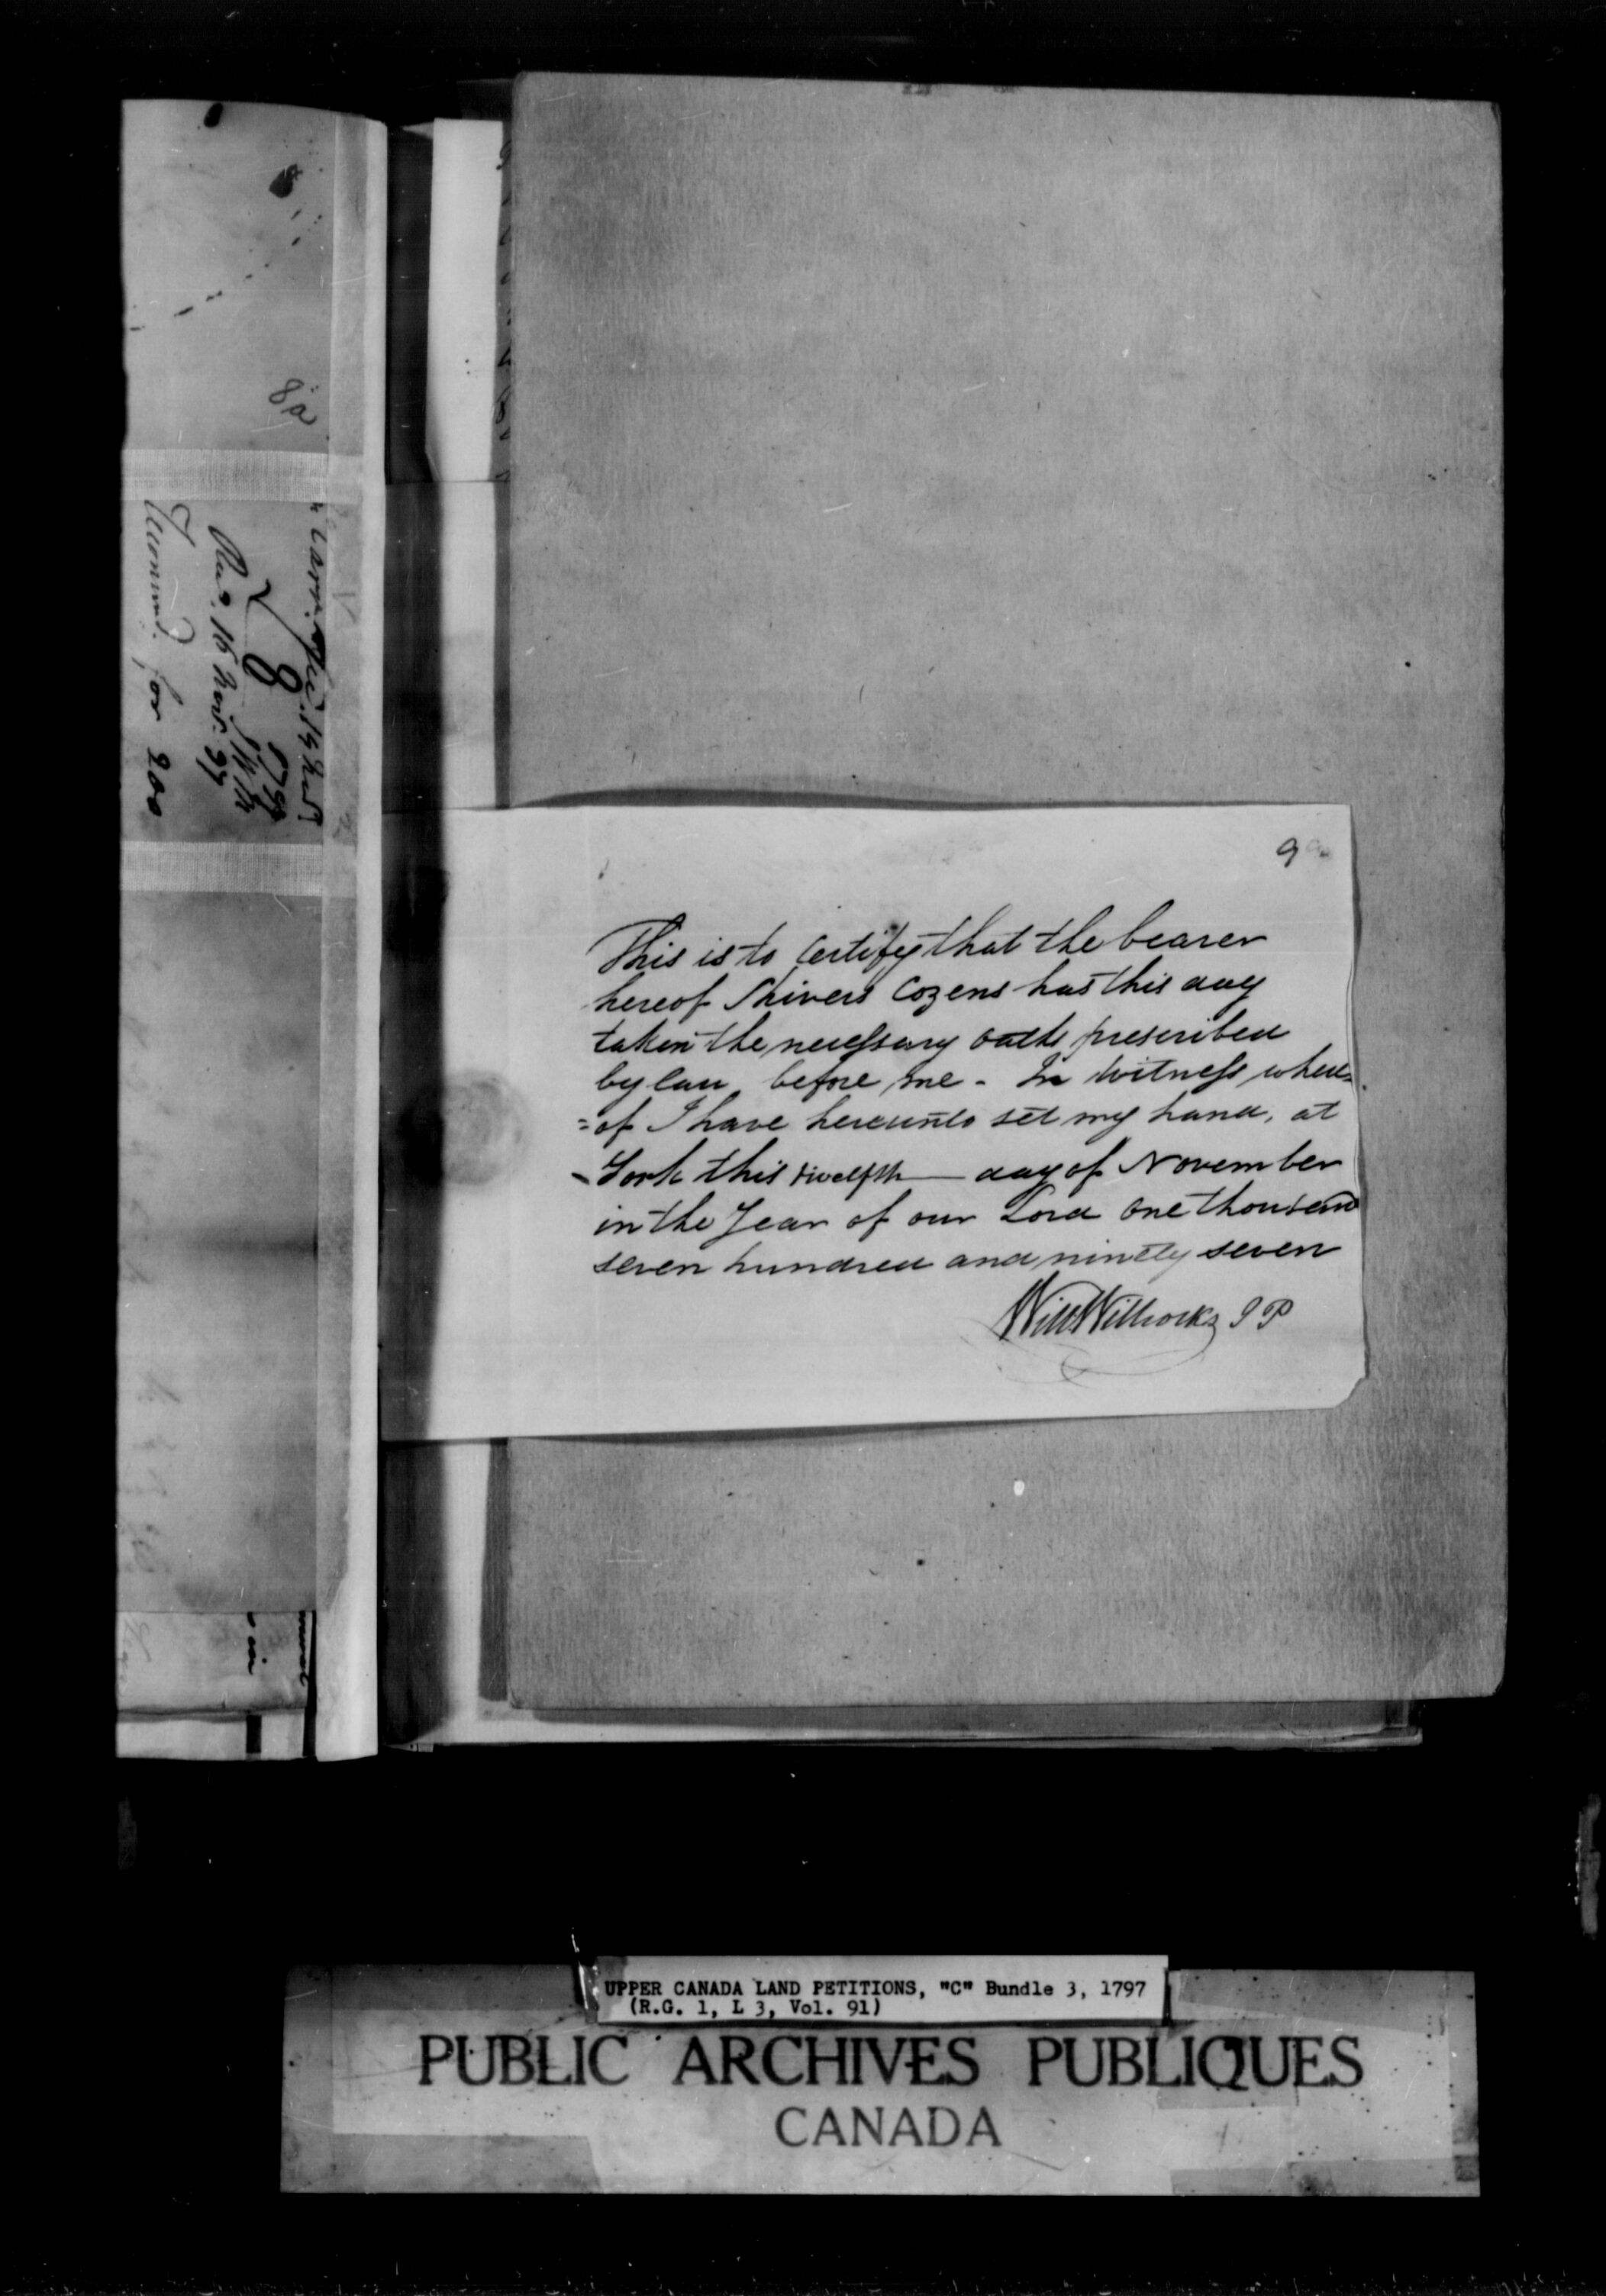 8a
8
Recommd. for 200
9
This is to Certify that the bearer
hereof Shivers Cozens has this day
taken the necessary oaths prescribed
by law before me - In Witness where=
=of I have hereunto set my hand, at
York this twelfth day of November
in the Year of our Lord One thousand
seven hundred and ninety seven
Will Willcocks J P
UPPER CANADA LAND PETITIONS, "C" Bundle 3, 1797
(R.G. 1, L 3, Vol. 91)
PUBLIC ARCHIVES PUBLIQUES
CANADA